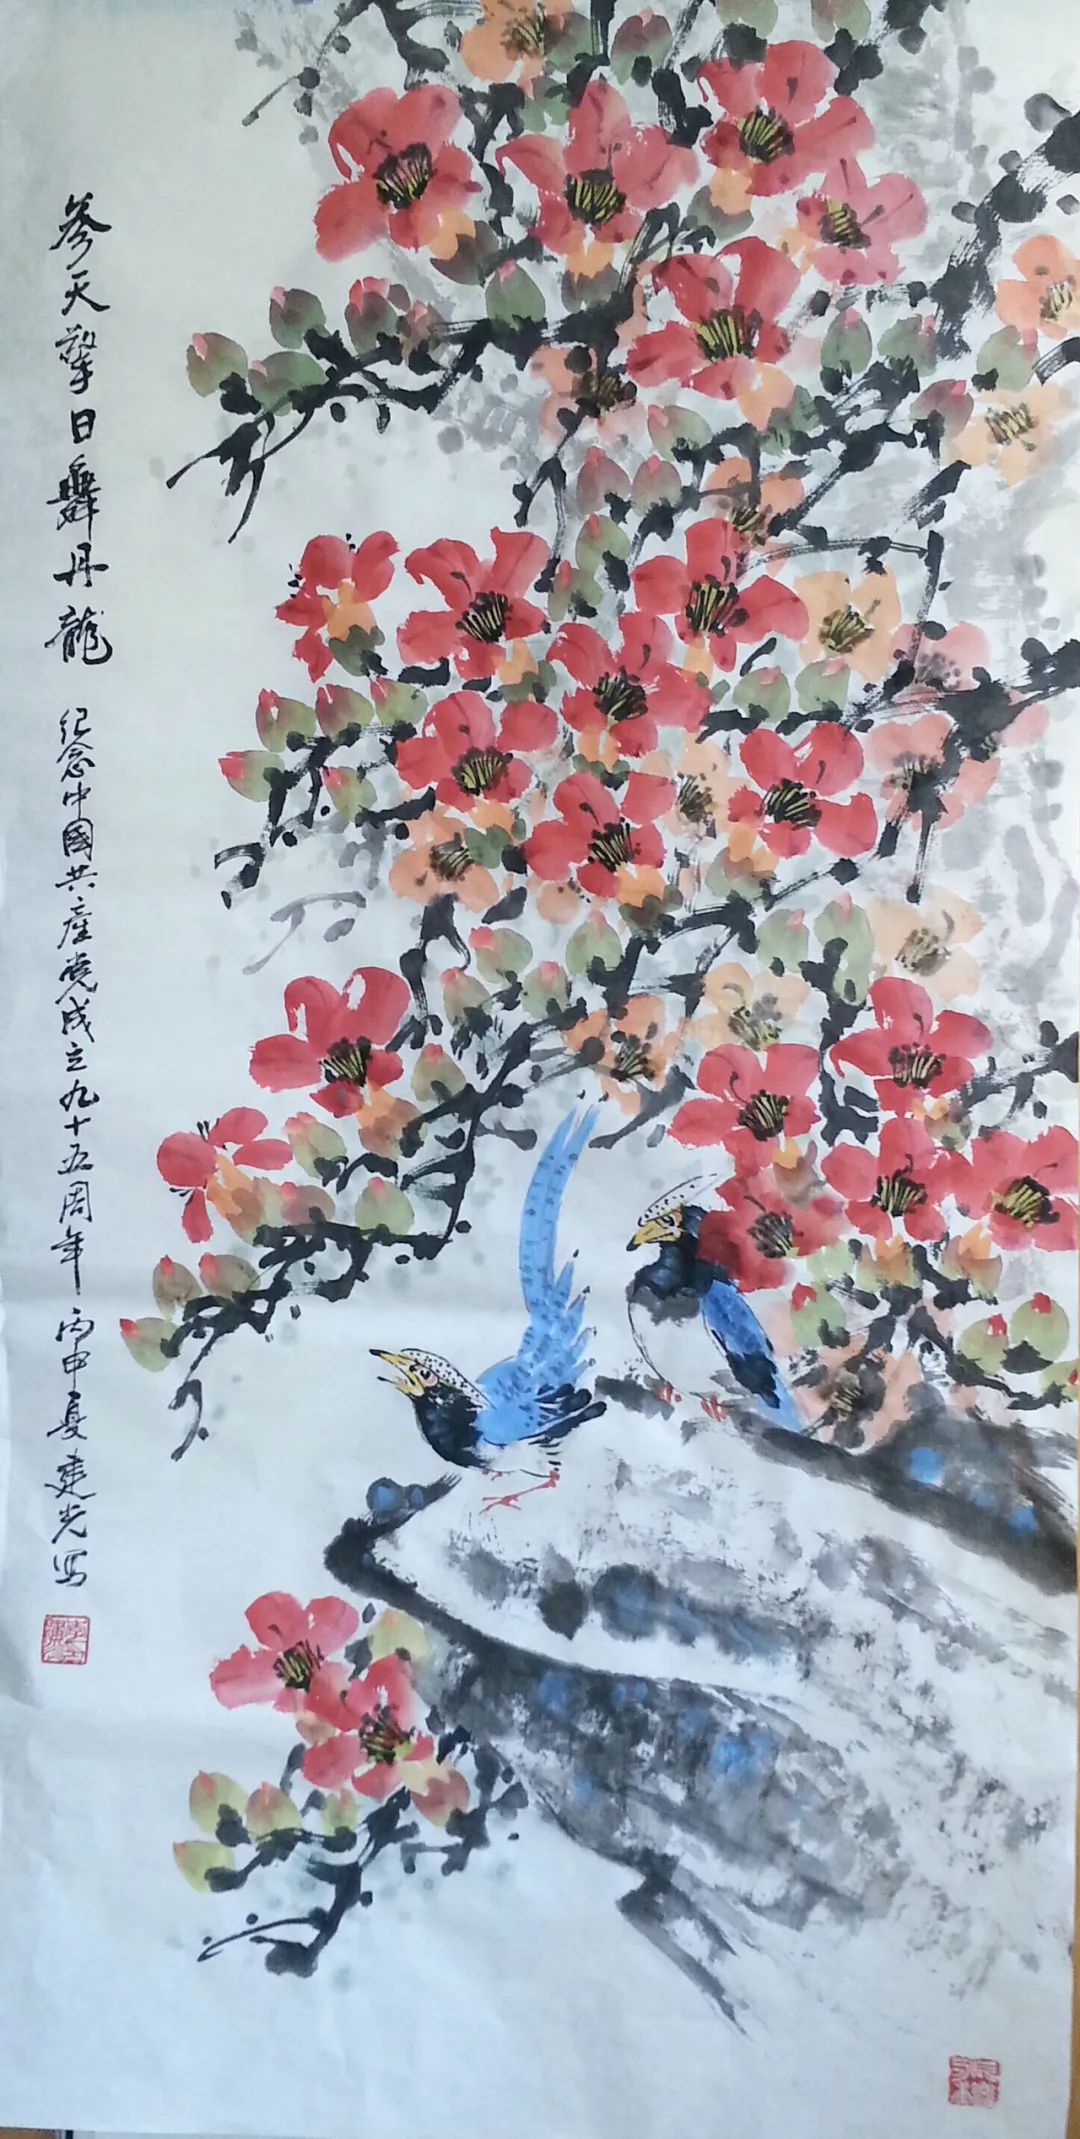 參天擎日舞丹龍 纪念中國共産党成立九十五周年 丙申夏建光写